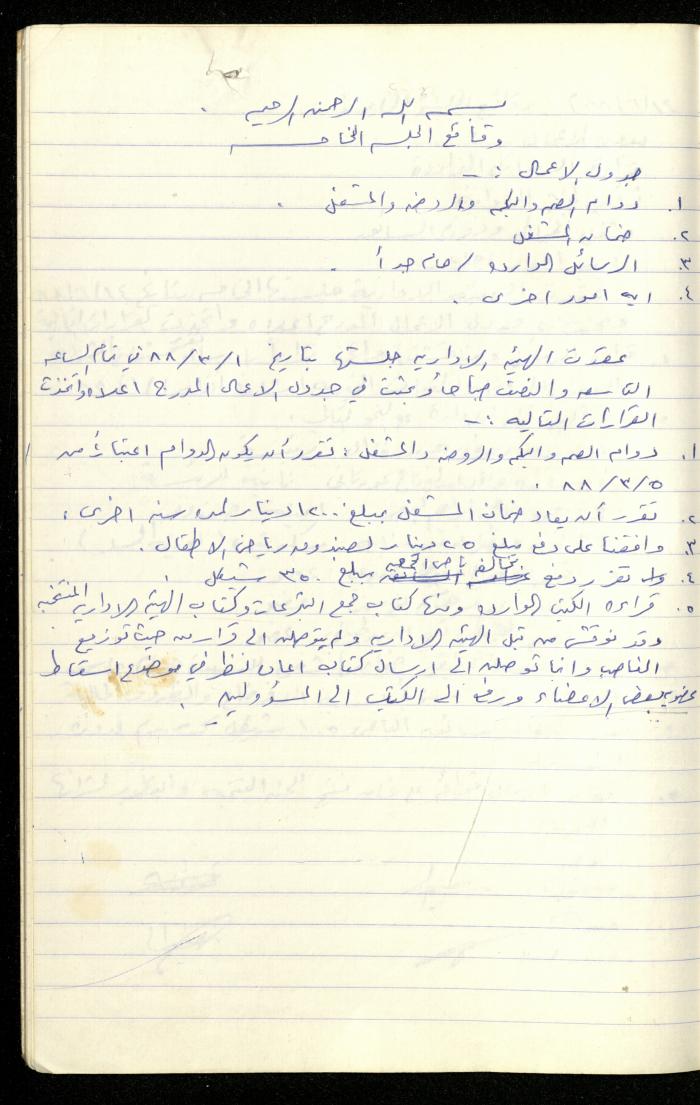 بسم الله الرحمن الرحيم .
وقائع الجلسه الخامسه
جدول الاعمال : ـ
١. دوام الصم والبكم والروضه والمشغل .
٢. ضمان المشغل
٣. الرسائل الوارده / هام جداً .
٤. ايه امور اخرى .
عقدت الهيئه الاداريه جلستها بتاريخ ٨٨/٣/١ في تمام الساعه
التاسعه والنصف صباحاً وبحثت في جدول الاعمال المدرج اعلاه واتخذت
القرارات التاليه :ـ
١. دوام الصم والبكم والروضه والمشغل : تقرر أن يكون الدوام اعتباراً من
٨٨/٣/٥ .
٢. تقرر أن يعاد ضمان المشغل بمبلغ ١٢٠٠ دينار لمده سنه اخرى .
٣. وافقنا على دفع مبلغ ٢٥ دينار لصندوق رياض الاطفال .
٤. تقرر دفع باص الجمعيه بمبلغ ٣٥٠ شيقل .
٥. قراءه الكتب الوارده ومنها كتاب جمع التبرعات وكتاب الهيئه الاداريه المنتخبه
وقد نوقش من قبل الهيئه الاداريه ولم يتوصلن الى قرار من حيث توزيع
المناصب وانما توصلن الى ارسال كتاب امعان النظر في موضوع اسقاط
عضويه بعض الاعضاء ورفع الى الكتب الى المسؤولين .